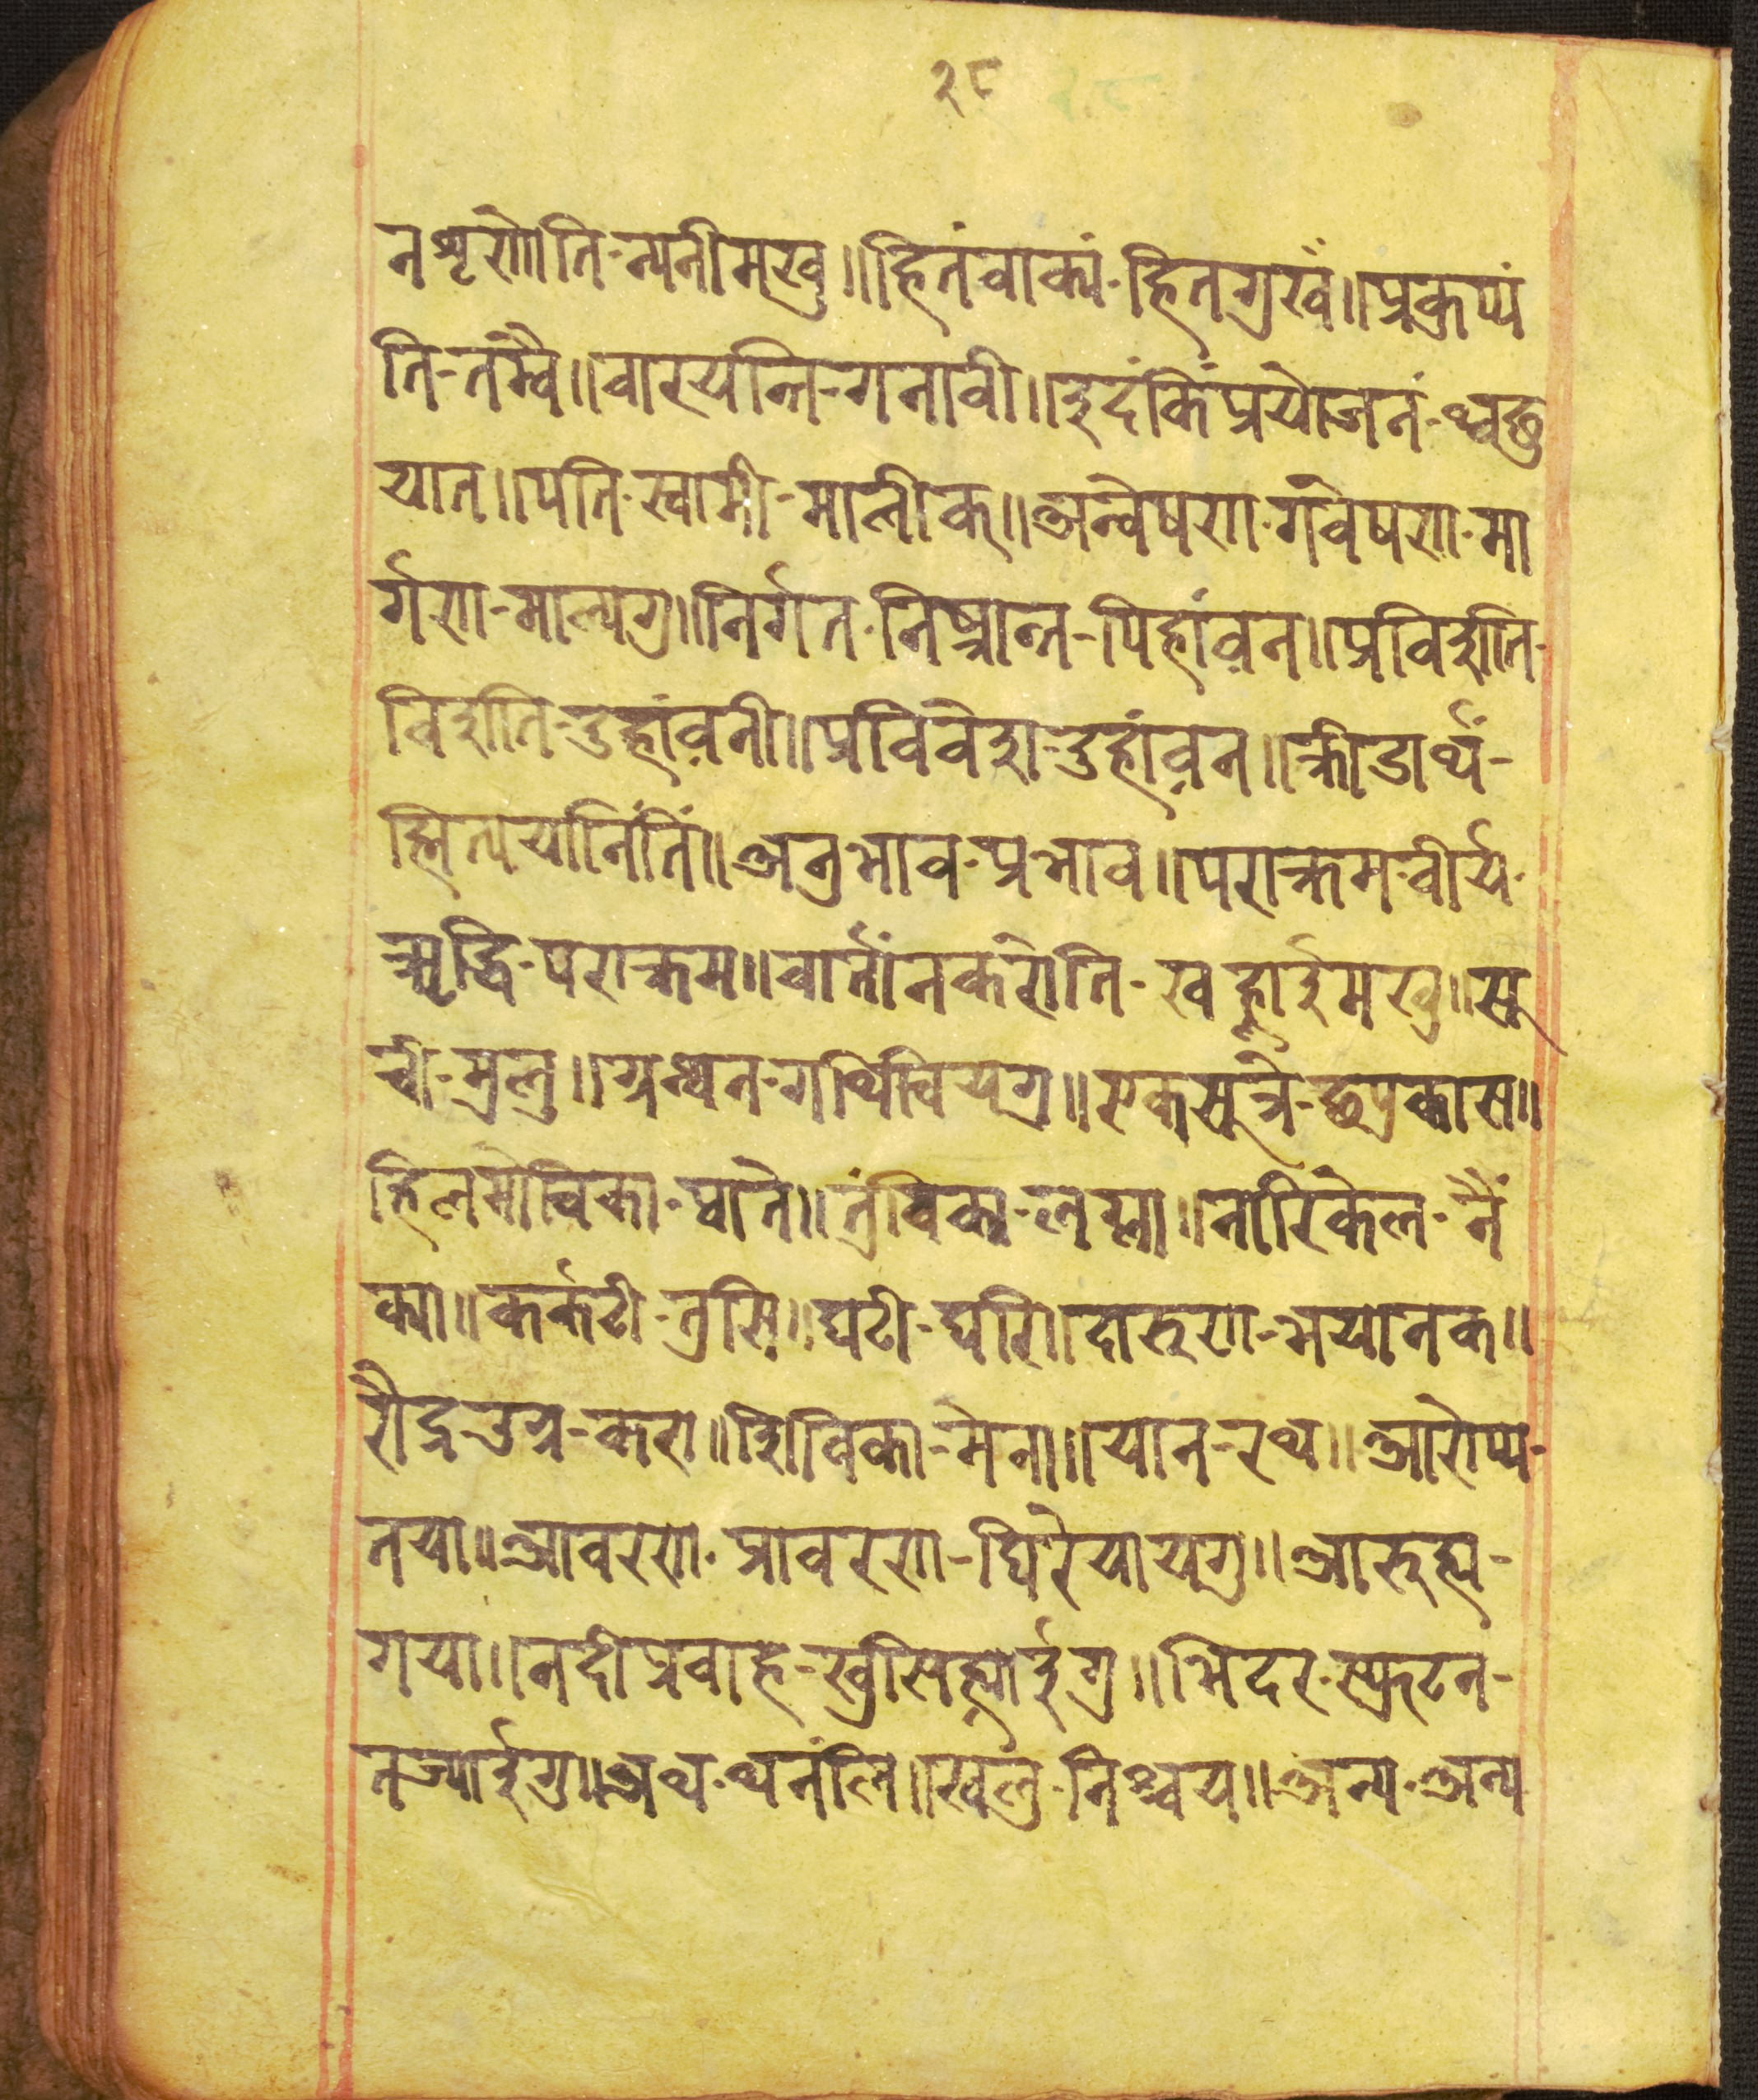 २८
नशृणोति-न्यनीमखु॥हितंवाक्यं-हितगुखँ॥प्रकुप्यं
ति-तंम्वै॥वारयन्ति-गनावी॥इदंकिंप्रयोजनं-थ्वछु
यात॥पति-स्वामी-मालीक॥अन्वेषण-गवेषण-मा
र्गण-माल्यगु॥निर्गत-निष्क्रान्त-पिहांव़न॥प्रविशति-
विशति-दुहांव़नी॥प्रविवेश-दुहांव़न॥क्रीडार्थं-
ह्मित्ययानिंतिं॥अनुभाव-प्रभाव॥पराक्रम-वीर्य-
ऋद्धि-पराक्रम॥वार्तांनकरोति-खँह्लाईमखु॥सू
ची-मुलु॥ग्रन्थन-गथिंचियगु॥एकसूत्रे-छपुकास॥
हिलमोचिका-प्वाते॥तुंविका-लय्ला॥नारिकेल-नै
क्या॥कर्कटी-तुसि॥घटी-घरि॥दारुण-भयानक॥
रौद्रउग्र-करा॥शिविका-मेना॥यान-रथ॥आरोप्य-
तया॥आवरण-प्रावरण-घिरेयायगु॥आरुह्य-
गया॥नदीप्रवाहे-खुसिह्याईगु॥भिदर-स्फुटन-
तज्याईगु॥अथ-थनंलि॥खलु-निश्चय॥अन्य-अन्य